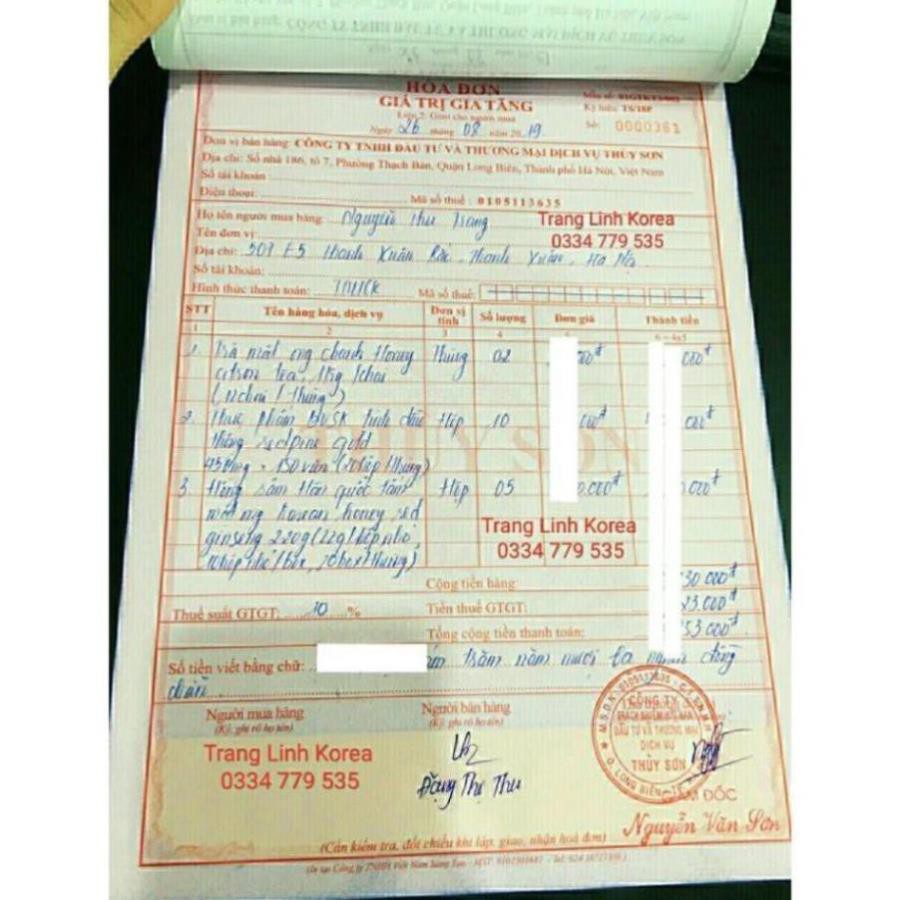 HÓA ĐƠN
GIÁ TRỊ GIA TĂNG
Liên 2: Giao cho người mua
Ký hiệu: TS/18P
Số: 0000361
Ngày 26 tháng 08 năm 2019
Đơn vị bán hàng: CÔNG TY TNHH ĐẦU TƯ VÀ THƯƠNG MẠI DỊCH VỤ THỦY SƠN
Địa chỉ: Số nhà 186, tổ 7, Phường Thạch Bàn, Quận Long Biên, Thành phố Hà Nội, Việt Nam
Số tài khoản:
Điện thoại: Mã số thuế: 0105113635
Họ tên người mua hàng: Nguyễn Thu Trang
Trang Linh Korea
0334 779 535
Tên đơn vị:
Địa chỉ: 509 E5 Thanh Xuân Bắc, Thanh Xuân, Hà Nội
Số tài khoản:
Hình thức thanh toán: TM/CK Mã số thuế:
STT Tên hàng hóa, dịch vụ Đơn vị tính Số lượng Đơn giá Thành tiền
1 2 3 4 6 = 4x5
1. Trà mật ong chanh Honey Thùng 02 00đ 000đ
citron tea, 1kg/chai
(12chai/thùng)
2. Thực phẩm BVSK tinh dầu Hộp 10 000đ 000đ
thông redpine gold
450mg x 180 viên (20hộp/thùng)
3. Hồng sâm Hàn quốc tẩm Hộp 05 0.000đ 000đ
mật ong Korean honey red
ginseng 220g (22g/hộp nhỏ,
10hộp nhỏ/box, 20box/thùng)
Trang Linh Korea
0334 779 535
Cộng tiền hàng: 30 000đ
Thuế suất GTGT: 10 % Tiền thuế GTGT: 23.000đ
Tổng cộng tiền thanh toán: 53 000đ
Số tiền viết bằng chữ: trăm năm mươi ba nghìn đồng
chẵn
Người mua hàng
(Ký, ghi rõ họ tên)
Người bán hàng
(Ký, ghi rõ họ tên)
Trang Linh Korea
0334 779 535
Đặng Thị Thu
M.S.D.N: 0105113635 - C.T.T.N.H.H
CÔNG TY
TRÁCH NHIỆM HỮU HẠN
ĐẦU TƯ VÀ THƯƠNG MẠI
DỊCH VỤ
THỦY SƠN
Q. LONG BIÊN
GIÁM ĐỐC
Nguyễn Văn Sơn
(Cần kiểm tra, đối chiếu khi lập, giao, nhận hoá đơn)